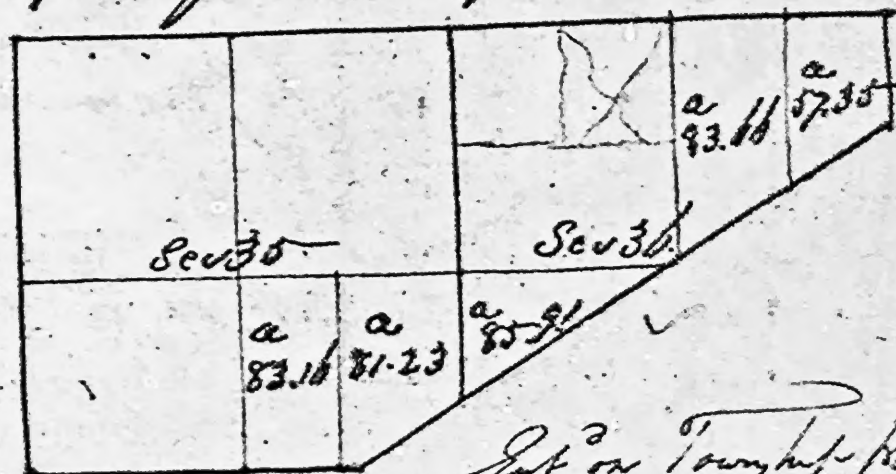 a
83.66
a
57.35
Sec 35
Sec 36
a
83.16
a
81.23
a
85.91
Entd on Township